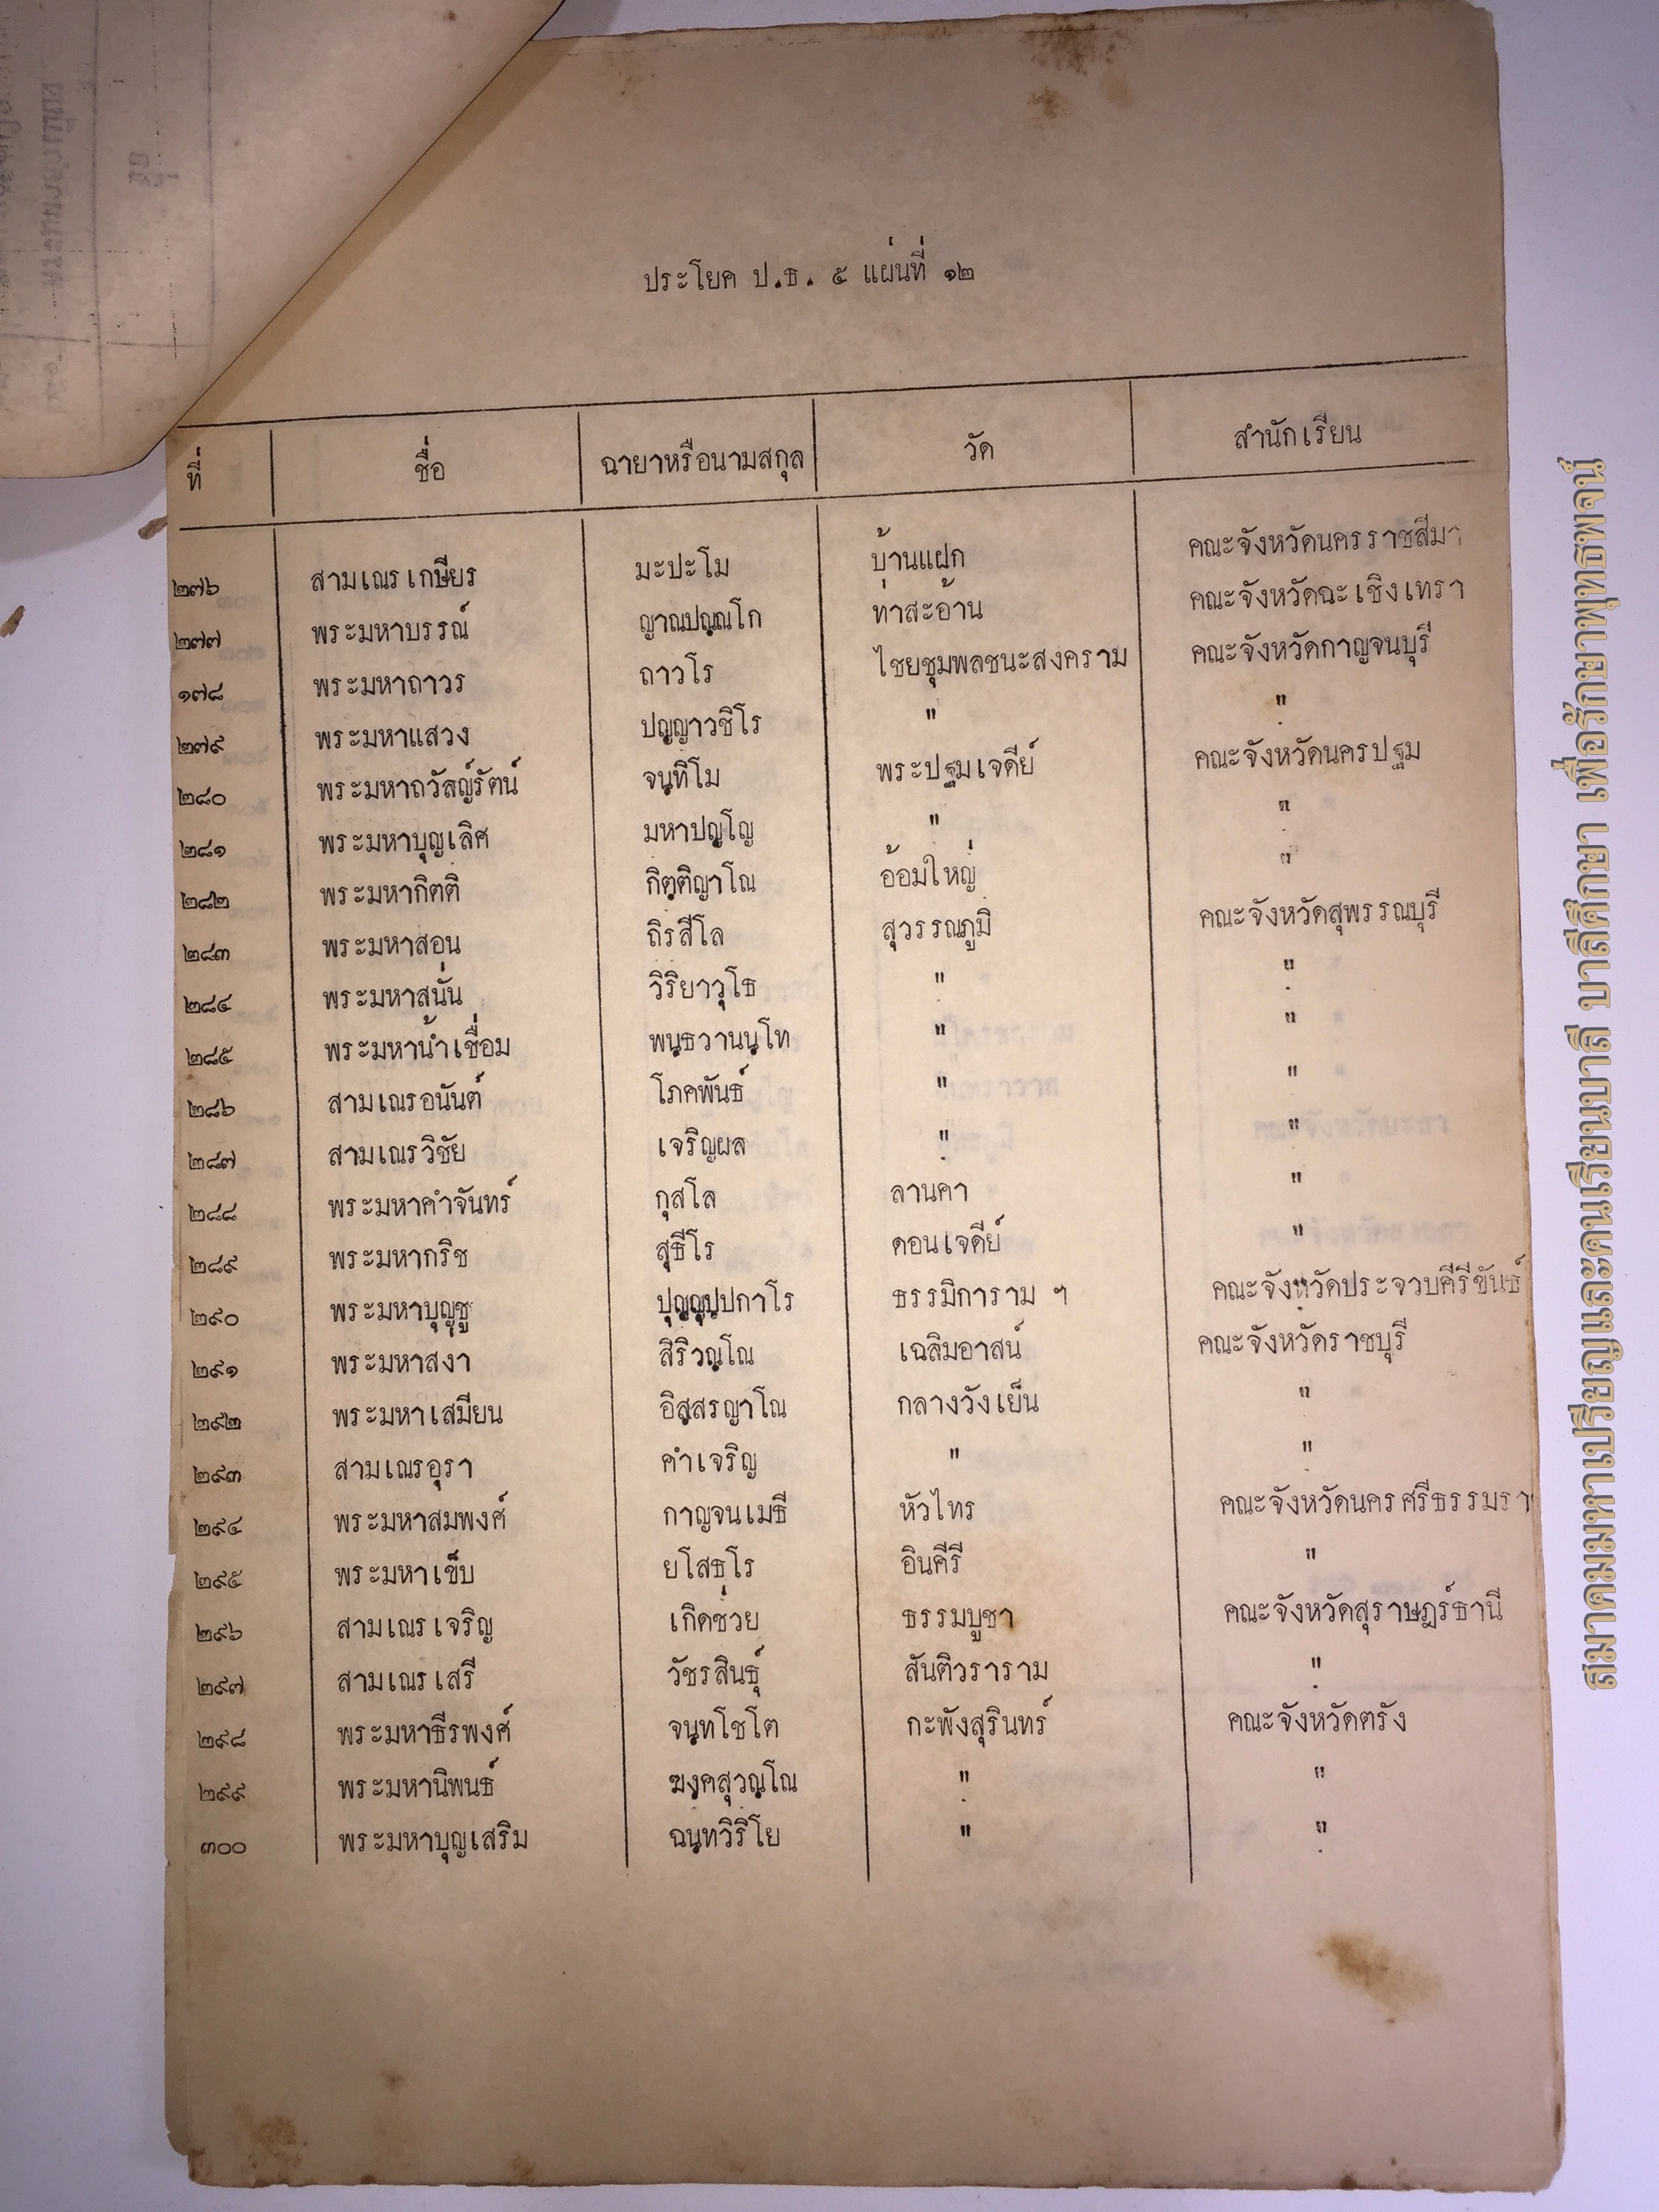 ประโยค ป.ธ. ๕ แผ่นที่ ๑๒
ที่ ชื่อ ฉายาหรือนามสกุล วัด สำนักเรียน
๒๗๖ สามเณรเกษียร มะปะโม บ้านแฝก คณะจังหวัดนครราชสีมา
๒๗๗ พระมหาบรรณ์ ญาณปญฺณโก ท่าสะอ้าน คณะจังหวัดฉะเชิงเทรา
๑๗๘ พระมหาถาวร ถาวโร ไชยชุมพลชนะสงคราม คณะจังหวัดกาญจนบุรี
๒๗๙ พระมหาแสวง ปญฺญาวชิโร " "
๒๘๐ พระมหาถวัลญ์รัตน์ จนฺทิโม พระปฐมเจดีย์ คณะจังหวัดนครปฐม
๒๘๑ พระมหาบุญเลิศ มหาปญฺโญ " "
๒๘๒ พระมหากิตติ กิตฺติญาโณ อ้อมใหญ่ "
๒๘๓ พระมหาสอน ถิรสีโล สุวรรณภูมิ คณะจังหวัดสุพรรณบุรี
๒๘๔ พระมหาสนั่น วิริยาวุโธ " "
๒๘๕ พระมหาน้ำเชื่อม พนฺธวานนฺโท " "
๒๘๖ สามเณรอนันต์ โภคพันธ์ " "
๒๘๗ สามเณรวิชัย เจริญผล " "
๒๘๘ พระมหาคำจันทร์ กุสโล ลานคา "
๒๘๙ พระมหากริช สุธีโร ดอนเจดีย์ "
๒๙๐ พระมหาบุญชู ปุญฺญปฺปกาโร ธรรมิการาม ฯ คณะจังหวัดประจวบคีรีขันธ์
๒๙๑ พระมหาสงา สิริวณฺโณ เฉลิมอาสน์ คณะจังหวัดราชบุรี
๒๙๒ พระมหาเสมียน อิสฺสรญาโณ กลางวังเย็น "
๒๙๓ สามเณรอุรา คำเจริญ " "
๒๙๔ พระมหาสมพงศ์ กาญจนเมธี หัวไทร คณะจังหวัดนครศรีธรรมรา
๒๙๕ พระมหาเข็บ ยโสธโร อินคีรี "
๒๙๖ สามเณรเจริญ เกิดช่วย ธรรมบูชา คณะจังหวัดสุราษฎร์ธานี
๒๙๗ สามเณรเสรี วัชรสินธุ์ สันติวราราม "
๒๙๘ พระมหาธีรพงศ์ จนฺทโชโต กะพังสุรินทร์ คณะจังหวัดตรัง
๒๙๙ พระมหานิพนธ์ ฆงฺคสุวณฺโณ " "
๓๐๐ พระมหาบุญเสริม ฉนฺทวิริโย " "
สมาคมมหาเปรียญและคนเรียนบาลี บาลีศึกษา เพื่อรักษาพุทธพจน์